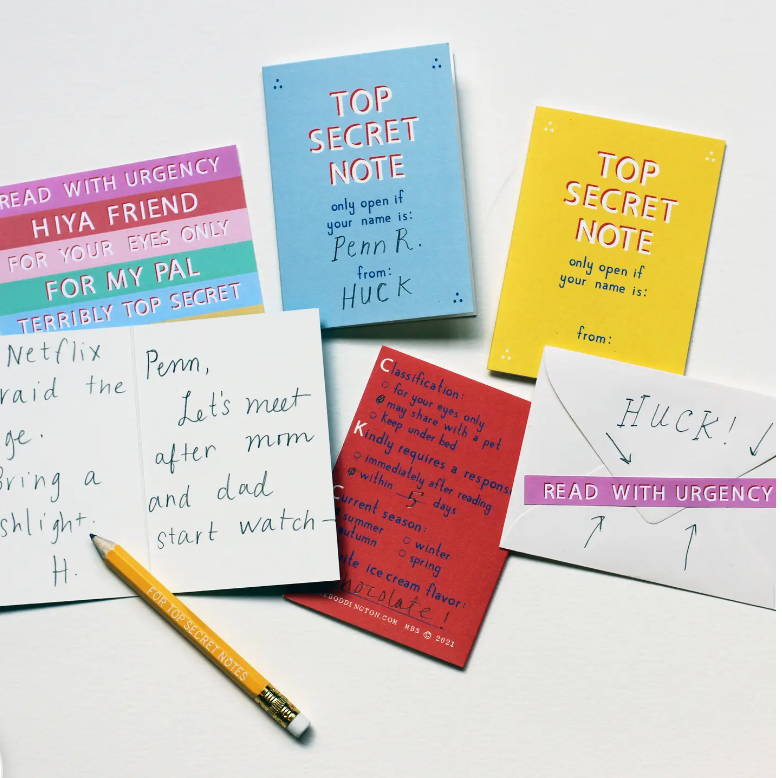 READ WITH URGENCY
HIYA FRIEND
FOR YOUR EYES ONLY
FOR MY PAL
TERRIBLY TOP SECRET
TOP
SECRET
NOTE
only open if
your name is:
Penn R.
from:
HUCK
TOP
SECRET
NOTE
only open if
your name is:
from:
Netflix
raid the
ge.
Bring a
shlight.
H.
Penn,
Let's meet
after mom
and dad
start watch-
Classification:
for your eyes only
may share with a pet
keep under bed
Kindly requires a respons
immediately after reading
within 5 days
Current season:
summer
winter
autumn
spring
ite ice cream flavor:
chocolate!
BODDINGTON.COM MBS © 2021
HUCK!
READ WITH URGENCY
FOR TOP SECRET NOTES